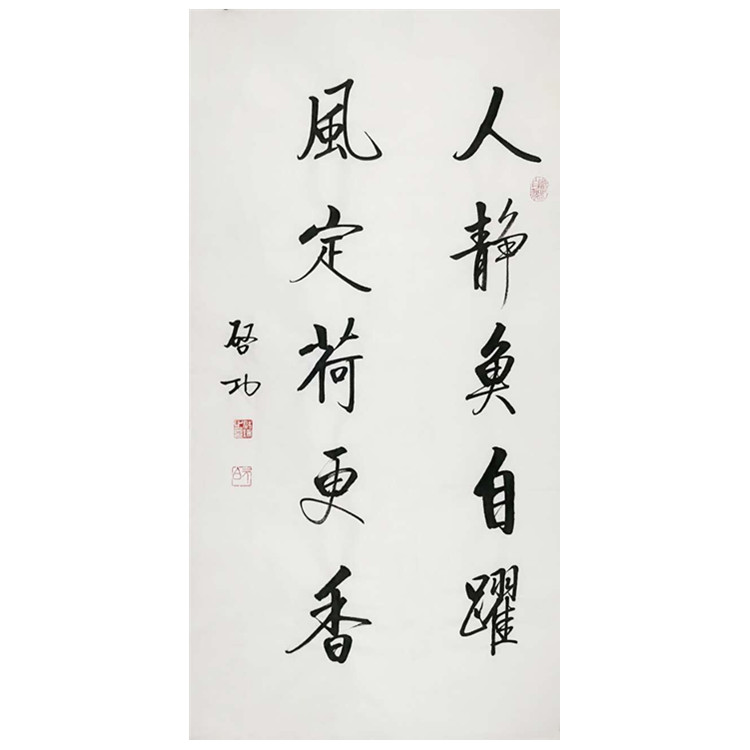 人静魚自躍
風定荷更香
啓功